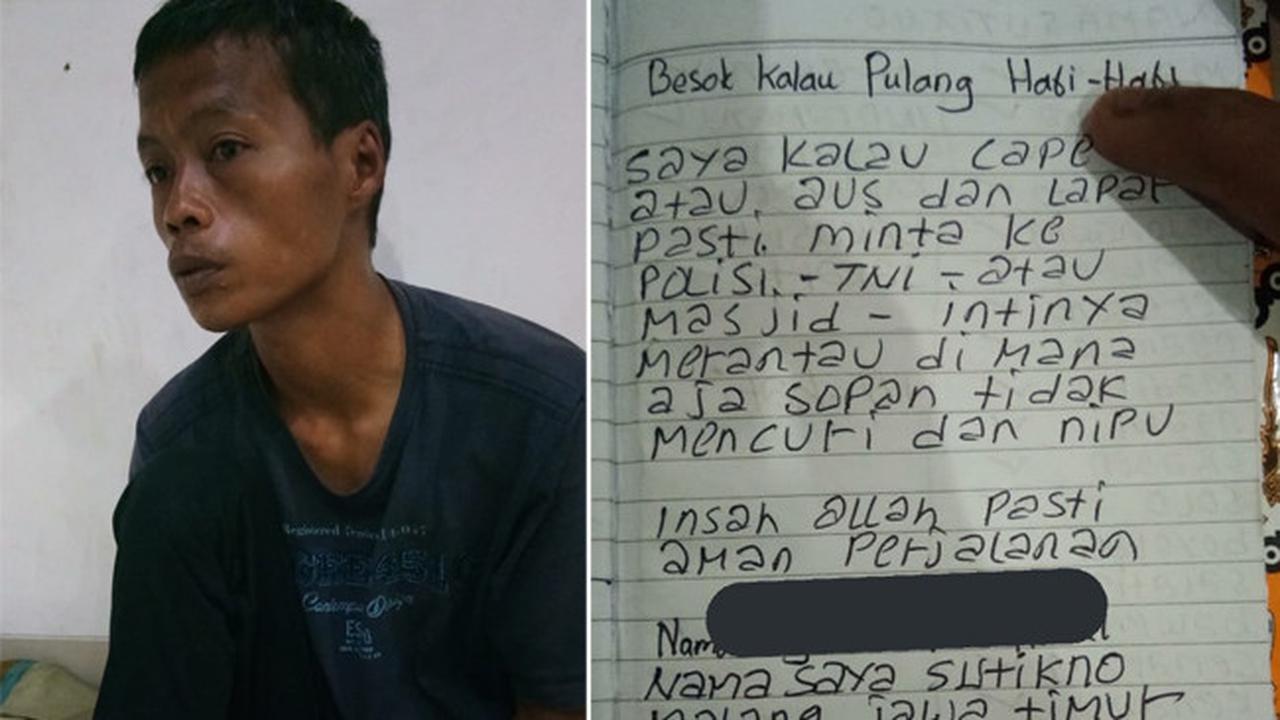 Besok Kalau Pulang Hati-Hati
saya kalau cape
atau. aus dan Lapar
pasti. minta ke
polisi. - TNI - atau
masjid - intinya
merantau di mana
aja sopan tidak
mencuri dan nipu
insah allah pasti
aman perjalanan
Nama saya sutikno
malang jawa timur